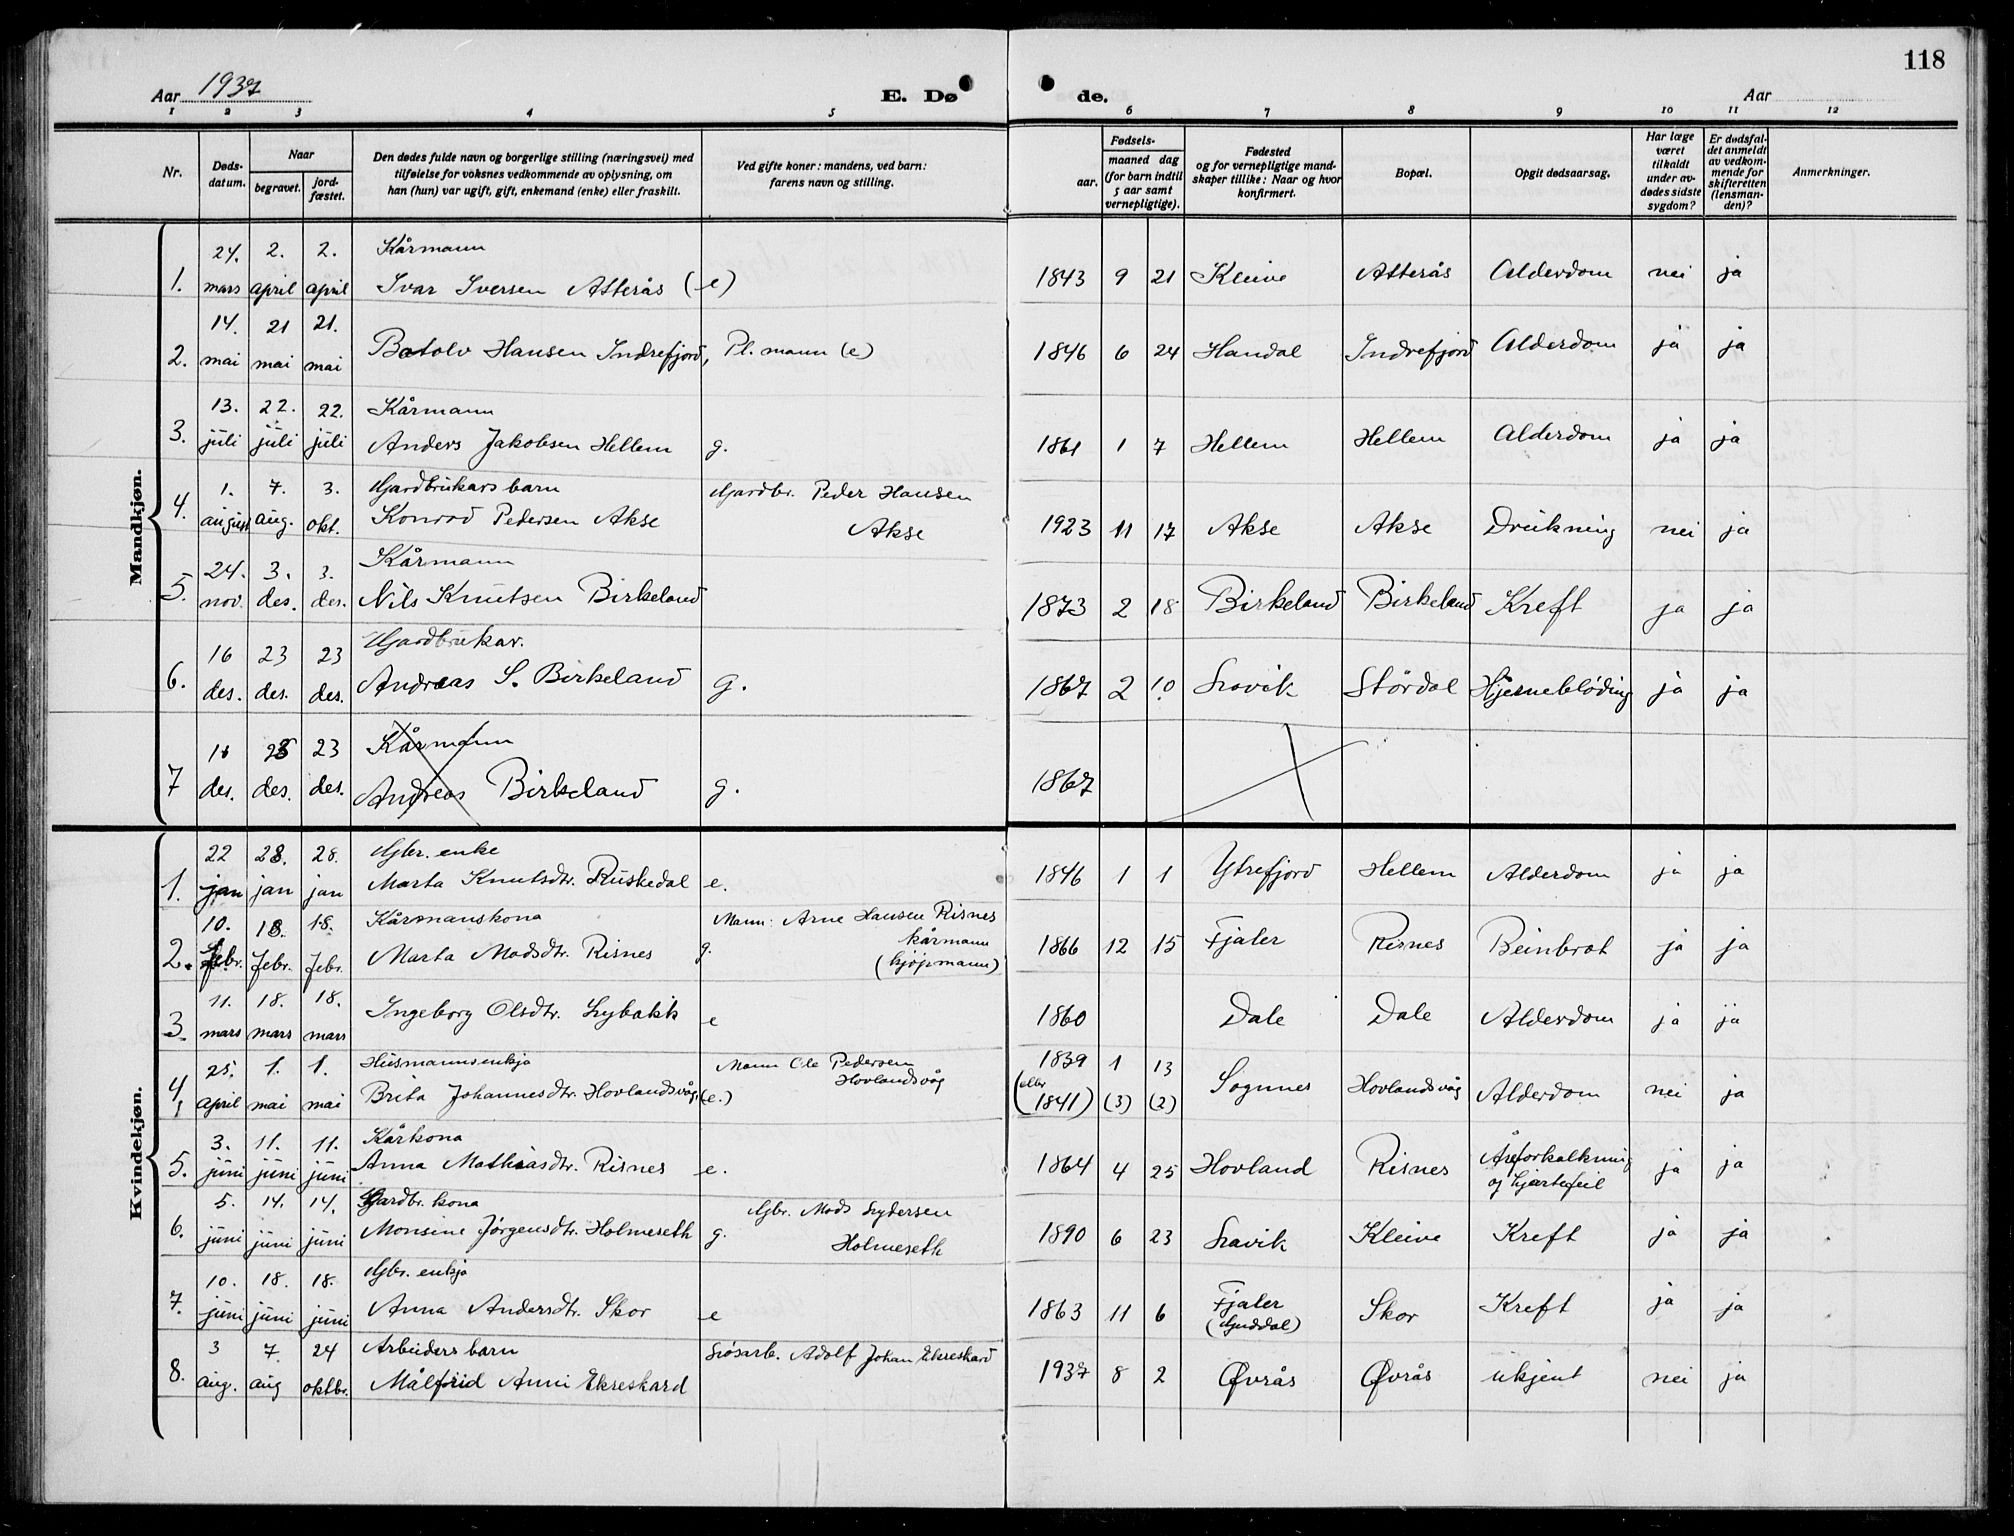 118
Aar 1937 E. Dø de. Aar
1 2 3 4 5 6 7 8 9 10 11 12
Nr. Døds-datum. Naar begravet. jord-fæstet. Den dødes fulde navn og borgerlige stilling (næringsvei) med tilføielse for voksnes vedkommende av oplysning, om han (hun) var ugift, gift, enkemand (enke) eller fraskilt. Ved gifte koner: mandens, ved barn: farens navn og stilling. Fødsels- aar. maaned dag (for barn indtil 5 aar samt vernepligtige). Fødested og for vernepligtige mand-skaper tillike: Naar og hvor konfirmert. Bopæl. Opgit dødsaarsag. Har læge været tilkaldt under av-dødes sidste sygdom? Er dødsfal-det anmeldt av vedkom-mende for skifteretten (lensman-den)? Anmerkninger.
Mandkjøn.
24. 2. 2. Kårmann
1. mars april april Ivar Iversen Atterås (e) 1843 9 21 Kleive Atterås Alderdom nei ja
14. 21 21.
2. mai mai mai Botolv Hansen Indrefjord, Pl. mann (e) 1846 6 24 Handal Indrefjord Alderdom ja ja
13. 22. 22. Kårmann
3. juli juli juli Anders Jakobsen Hellem g. 1861 1 7 Hellem Hellem Alderdom ja ja
1. 7. 3. Gardbrukars barn Gardbr. Peder Hansen
4. august aug. okt. Konrad Pedersen Akse Akse 1923 11 17 Akse Akse Drukning nei ja
24. 3. 3. Kårmann
5. nov. des. des. Nils Knutsen Birkeland 1873 2 18 Birkeland Birkeland Kreft ja ja
16 23 23 Gardbrukar.
6. des. des. des. Andreas S. Birkeland g. 1867 2 10 Lavik Stördal Hjerneblöding ja ja
16 23 23 Kårmann
7 des. des. des. Andreas Birkeland g. 1867
Kvindekjøn.
22 28. 28. Gbr. enke
1. jan jan jan Marta Knutsdtr. Ruskedal e. 1846 1 1 Ytrefjord Hellem Alderdom ja ja
10. 18. 18. Kårmanskona Mann: Arne Hansen Risnes
kårmann
2. febr. febr. febr. Marta Madsdtr. Risnes g. (kjøpmann) 1866 12 15 Fjaler Risnes Beinbrot ja ja
11. 18. 18.
3 mars mars mars Ingeborg Olsdtr. Lybakk e 1860 Dale Dale Alderdom ja ja
25. 1. 1. Husmannsenkja Mann Ole Pedersen Hovlandsvåg 1839 1 13
4 april mai mai Brita Johannesdtr. Hovlandsvåg (e.) (eller 1841) (3) (2) Sognnes Hovlandsvåg Alderdom nei ja
3. 11. 11. Kårkona
5. juni juni juni Anna Mathiasdtr. Risnes e. 1864 4 25 Hovland Risnes Åreforkalkning og hjartefeil ja ja
5. 14. 14. Gardbr. kona Gbr. Mads Lydersen
6. juni juni juni Monsine Jørgensdtr. Holmeseth g. Holmeseth 1890 6 23 Lavik Kleive Kreft ja ja
10. 18. 18. Gbr. enkja
7. juni juni juni Anna Andersdtr. Skor e 1863 11 6 Fjaler (Guddal) Skor Kreft ja ja
3 7. 24 Arbeiders barn Løsarb. Adolf Johan Ekreskard
8. aug. aug oktbr. Målfrid Anni Ekreskard 1937 8 2 Øvrås Øvrås ukjent nei ja